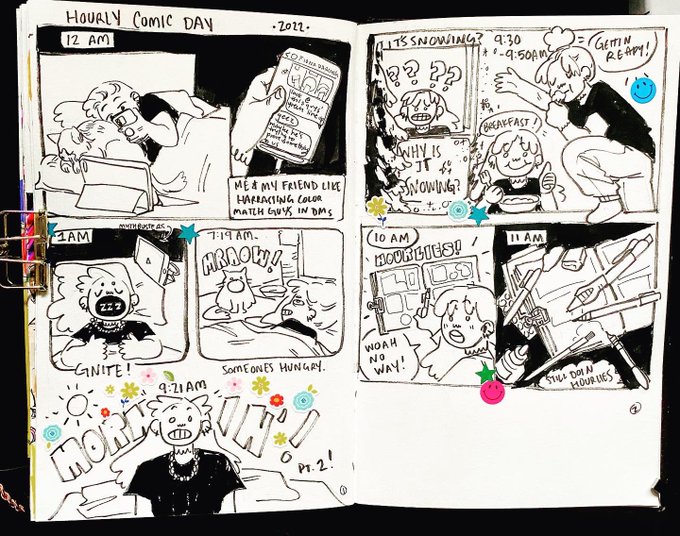 HOURLY COMIC DAY
·2022·
12 AM
ME & MY FRIEND LIKE
HARASSING COLOR
MATCH GUYS IN DMS
1AM
MYTHBUSTERS
ZZZ
GNITE!
7:19AM
MRAOW!
SOMEONES HUNGRY.
9:21AM
MORNIN'!
PT. 2!
1
ITS SNOWING?
? ? ? ?
WHY IS
IT
SNOWING?
9:30
-9:50AM
=
GETTIN
READY!
BREAKFAST!
10 AM
HOURLIES!
WOAH
NO
WAY!
11 AM
STILL DOIN
HOURLIES
2